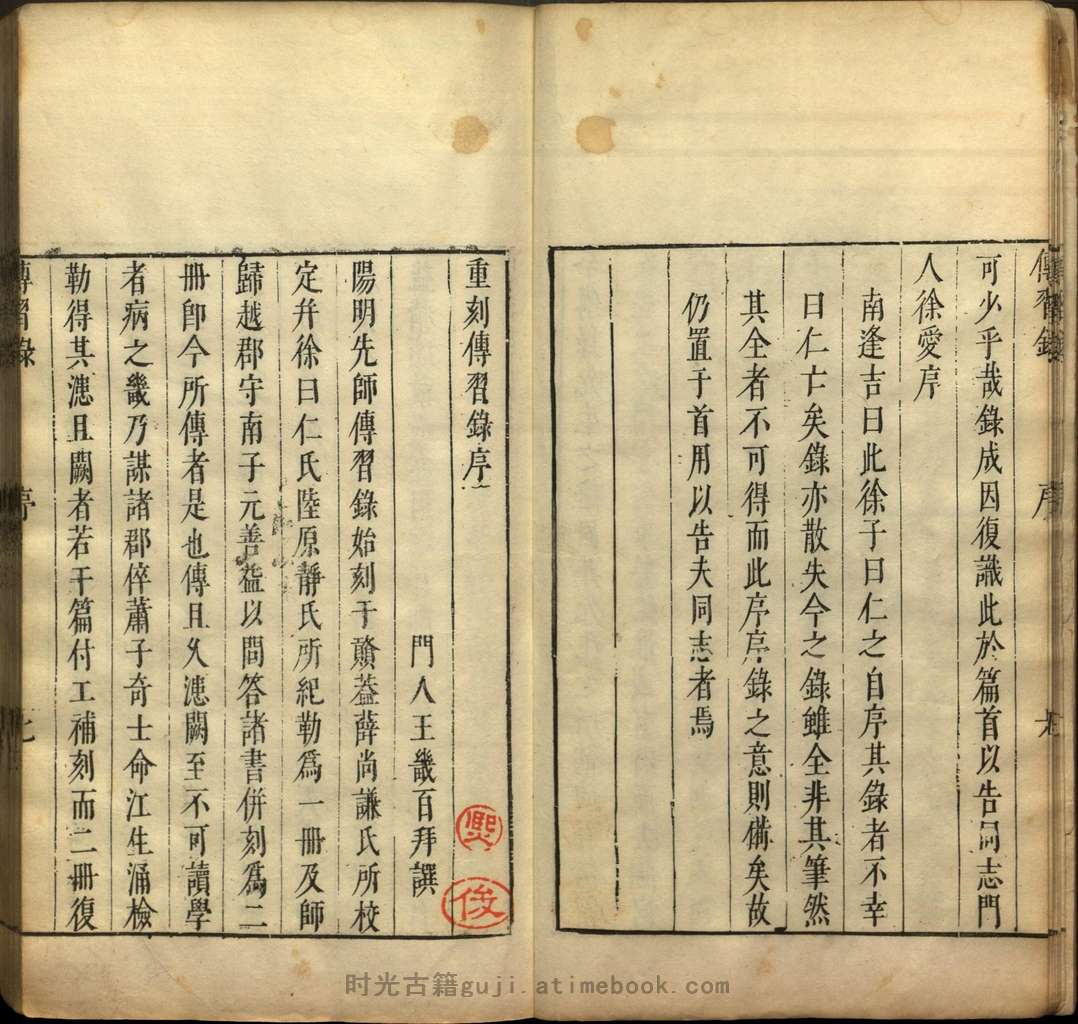 傳習錄
序
可少乎哉錄成因復識此於篇首以告同志門
人徐愛序
南逢吉曰此徐子曰仁之自序其錄者不幸
曰仁亡矣錄亦散失今之錄雖全非其筆然
其全者不可得而此序序錄之意則備矣故
仍置于首用以告夫同志者焉
重刻傳習錄序
門人王畿百拜譔
陽明先師傳習錄始刻于贛葢薛尚謙氏所校
定幷徐曰仁氏陸原靜氏所紀勒爲一冊及師
歸越郡守南子元善益以問答諸書併刻爲二
冊卽今所傳者是也傳且久漶闕至不可讀學
者病之畿乃謀諸郡倅蕭子奇士命江生涌檢
勒得其漶且闕者若干篇付工補刻而二冊復
傳習錄
序
七
煕
俊
时光古籍guji.atimebook.com